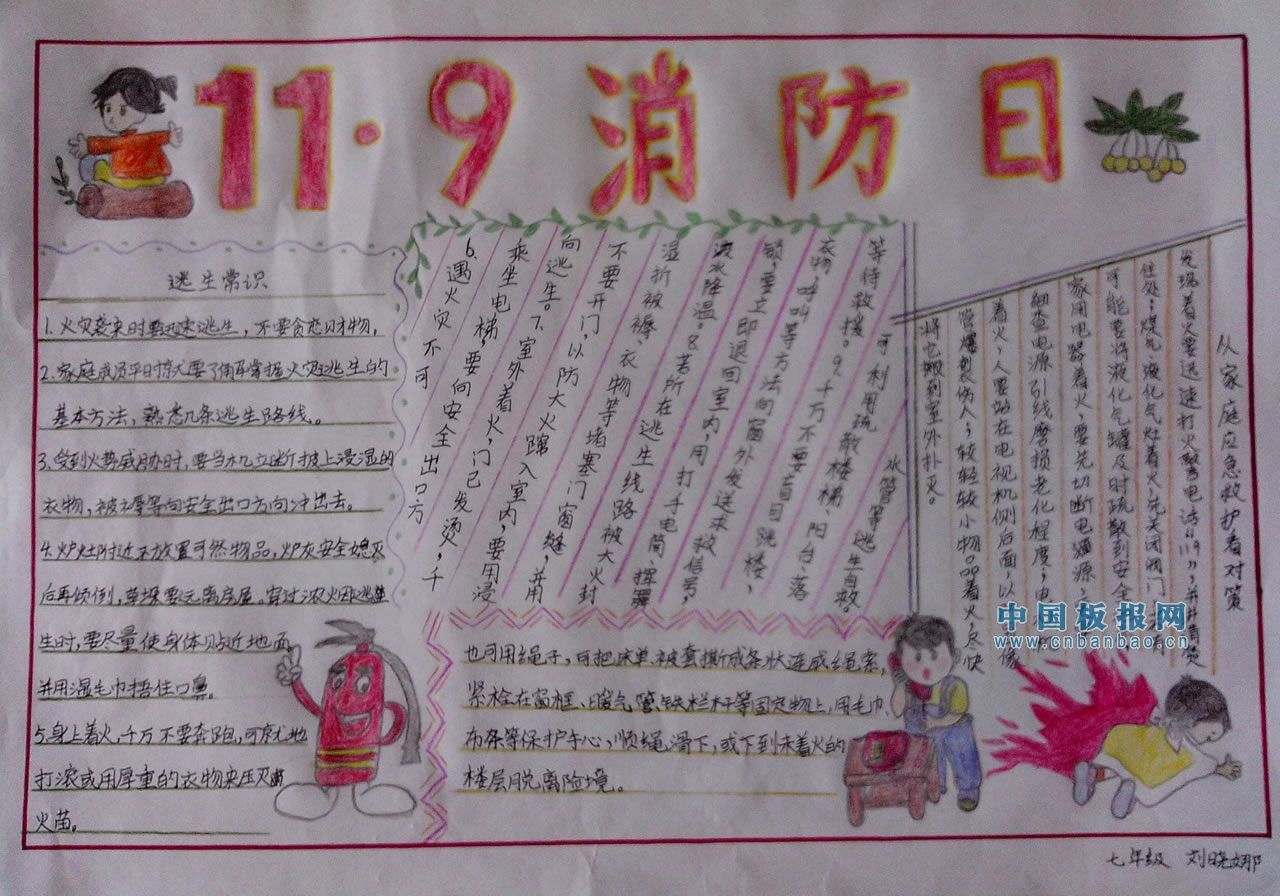 11·9消防日
逃生常识
1.火灾袭来时要迅速逃生,不要贪恋财物,
2.家庭成员平时就要了解掌握火灾逃生的
基本方法,熟悉几条逃生路线。
3.受到火势威胁时,要当机立断披上浸湿的
衣物,被褥等向安全出口方向冲出去。
4.炉灶附近不放置可燃物品,炉灰安全熄灭
后再倾倒,草垛要远离房屋。穿过浓烟逃
生时,要尽量使身体贴近地面,
并用湿毛巾捂住口鼻。
5.身上着火,千万不要奔跑,可就地
打滚或用厚重的衣物来压灭
火苗。
6、遇火灾不可
乘坐电梯,要向安全出口方
向逃生。7、室外着火,门已发烫,千
不要开门,以防大火蹿入室内,要用浸
湿折被褥、衣物等堵塞门窗缝,并用
泼水降温。8.若所在逃生线路被大火封
锁,要立即退回室内,用打手电筒、挥舞
衣物,呼叫等方法向窗外发送求救信号,
等待救援。9、千万不要盲目跳楼,
可利用疏散楼梯、阳台、落
水管等逃生自救。
也可用绳子,可把床单、被套撕成条状连成绳索,
紧栓在窗框、暖气管、铁栏杆等固定物上,用毛巾、
布条等保护手心,顺绳滑下,或下到未着火的
楼层脱离险境。
从家庭应急救护看对策
发现着火要迅速打火警电话"119",并
住处;煤气、液化气灶着火,先关闭阀门,
可能要将液化气罐及时疏散到安全
家用电器着火,要先切断电源,
细查电源引线磨损老化程度;电视
着火,人要站在电视机侧后面,以
管爆裂伤人;较轻较小物品着火,尽快
将它搬到室外扑灭。
中国板报网
www.cnbanbao.cn
七年级 刘晓娜